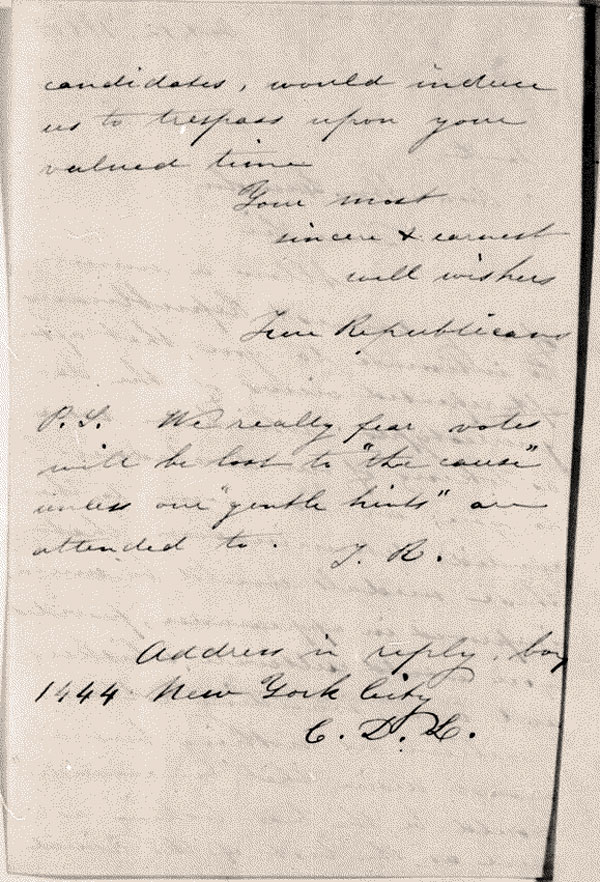 candidates, would induce
us to trespass upon your
valued time
Your most
sincere & earnest
well wishers
True Republicans
P.S. We really fear votes
will be lost to "the cause"
unless our "gentle hints" are
attended to. T. R.
Address in reply, box
1444 New York City
C. D. L.